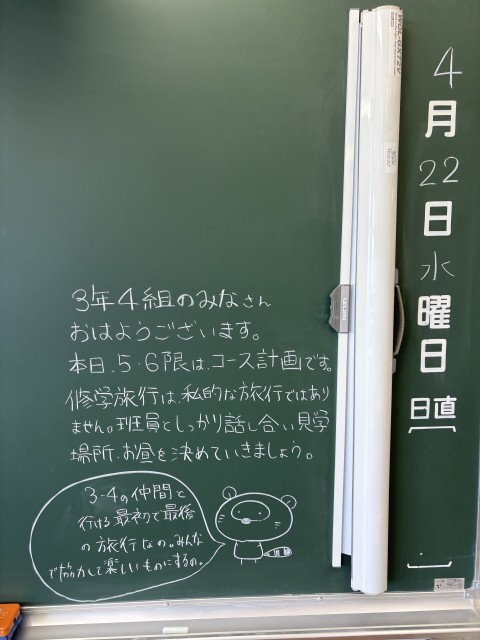 3年4組のみなさん
おはようございます。
本日、5・6限は、コース計画です。
修学旅行は、私的な旅行ではあり
ません。班員としっかり話し合い見学
場所、お昼を決めていきましょう。
3-4の仲間と
行ける最初で最後
の旅行なの。みんな
で協力して楽しいものにするの。
4
月
22
日
水
曜
日
日直